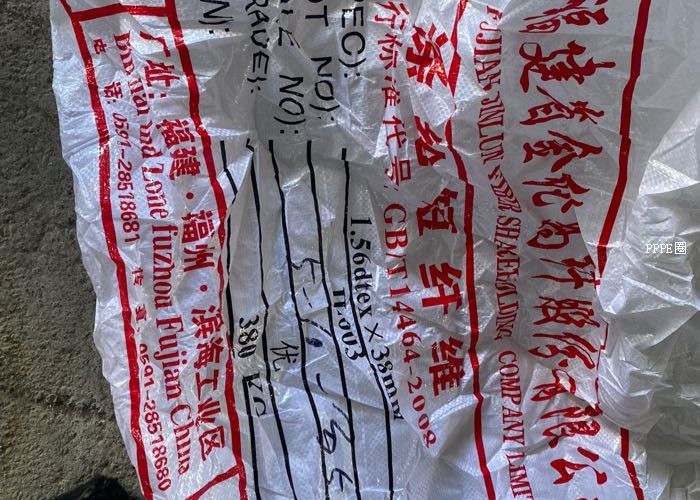 福建省金伦高纤股份有限公
FUJIAN JINLUN FIBER SHAREHOLDING COMPANY LIMI
涤纶短纤维
行标准代号: GB/T14464-2008
EC): 1.56dtex×38mm
NO):
LE NO):
RAVE): 优
N): 380 KG
厂址: 福建·福州·滨海工业区
Industrial and Zone fuzhou Fujian China
电话: 0591-28518681 传真: 0591-28518680
PPPE圈